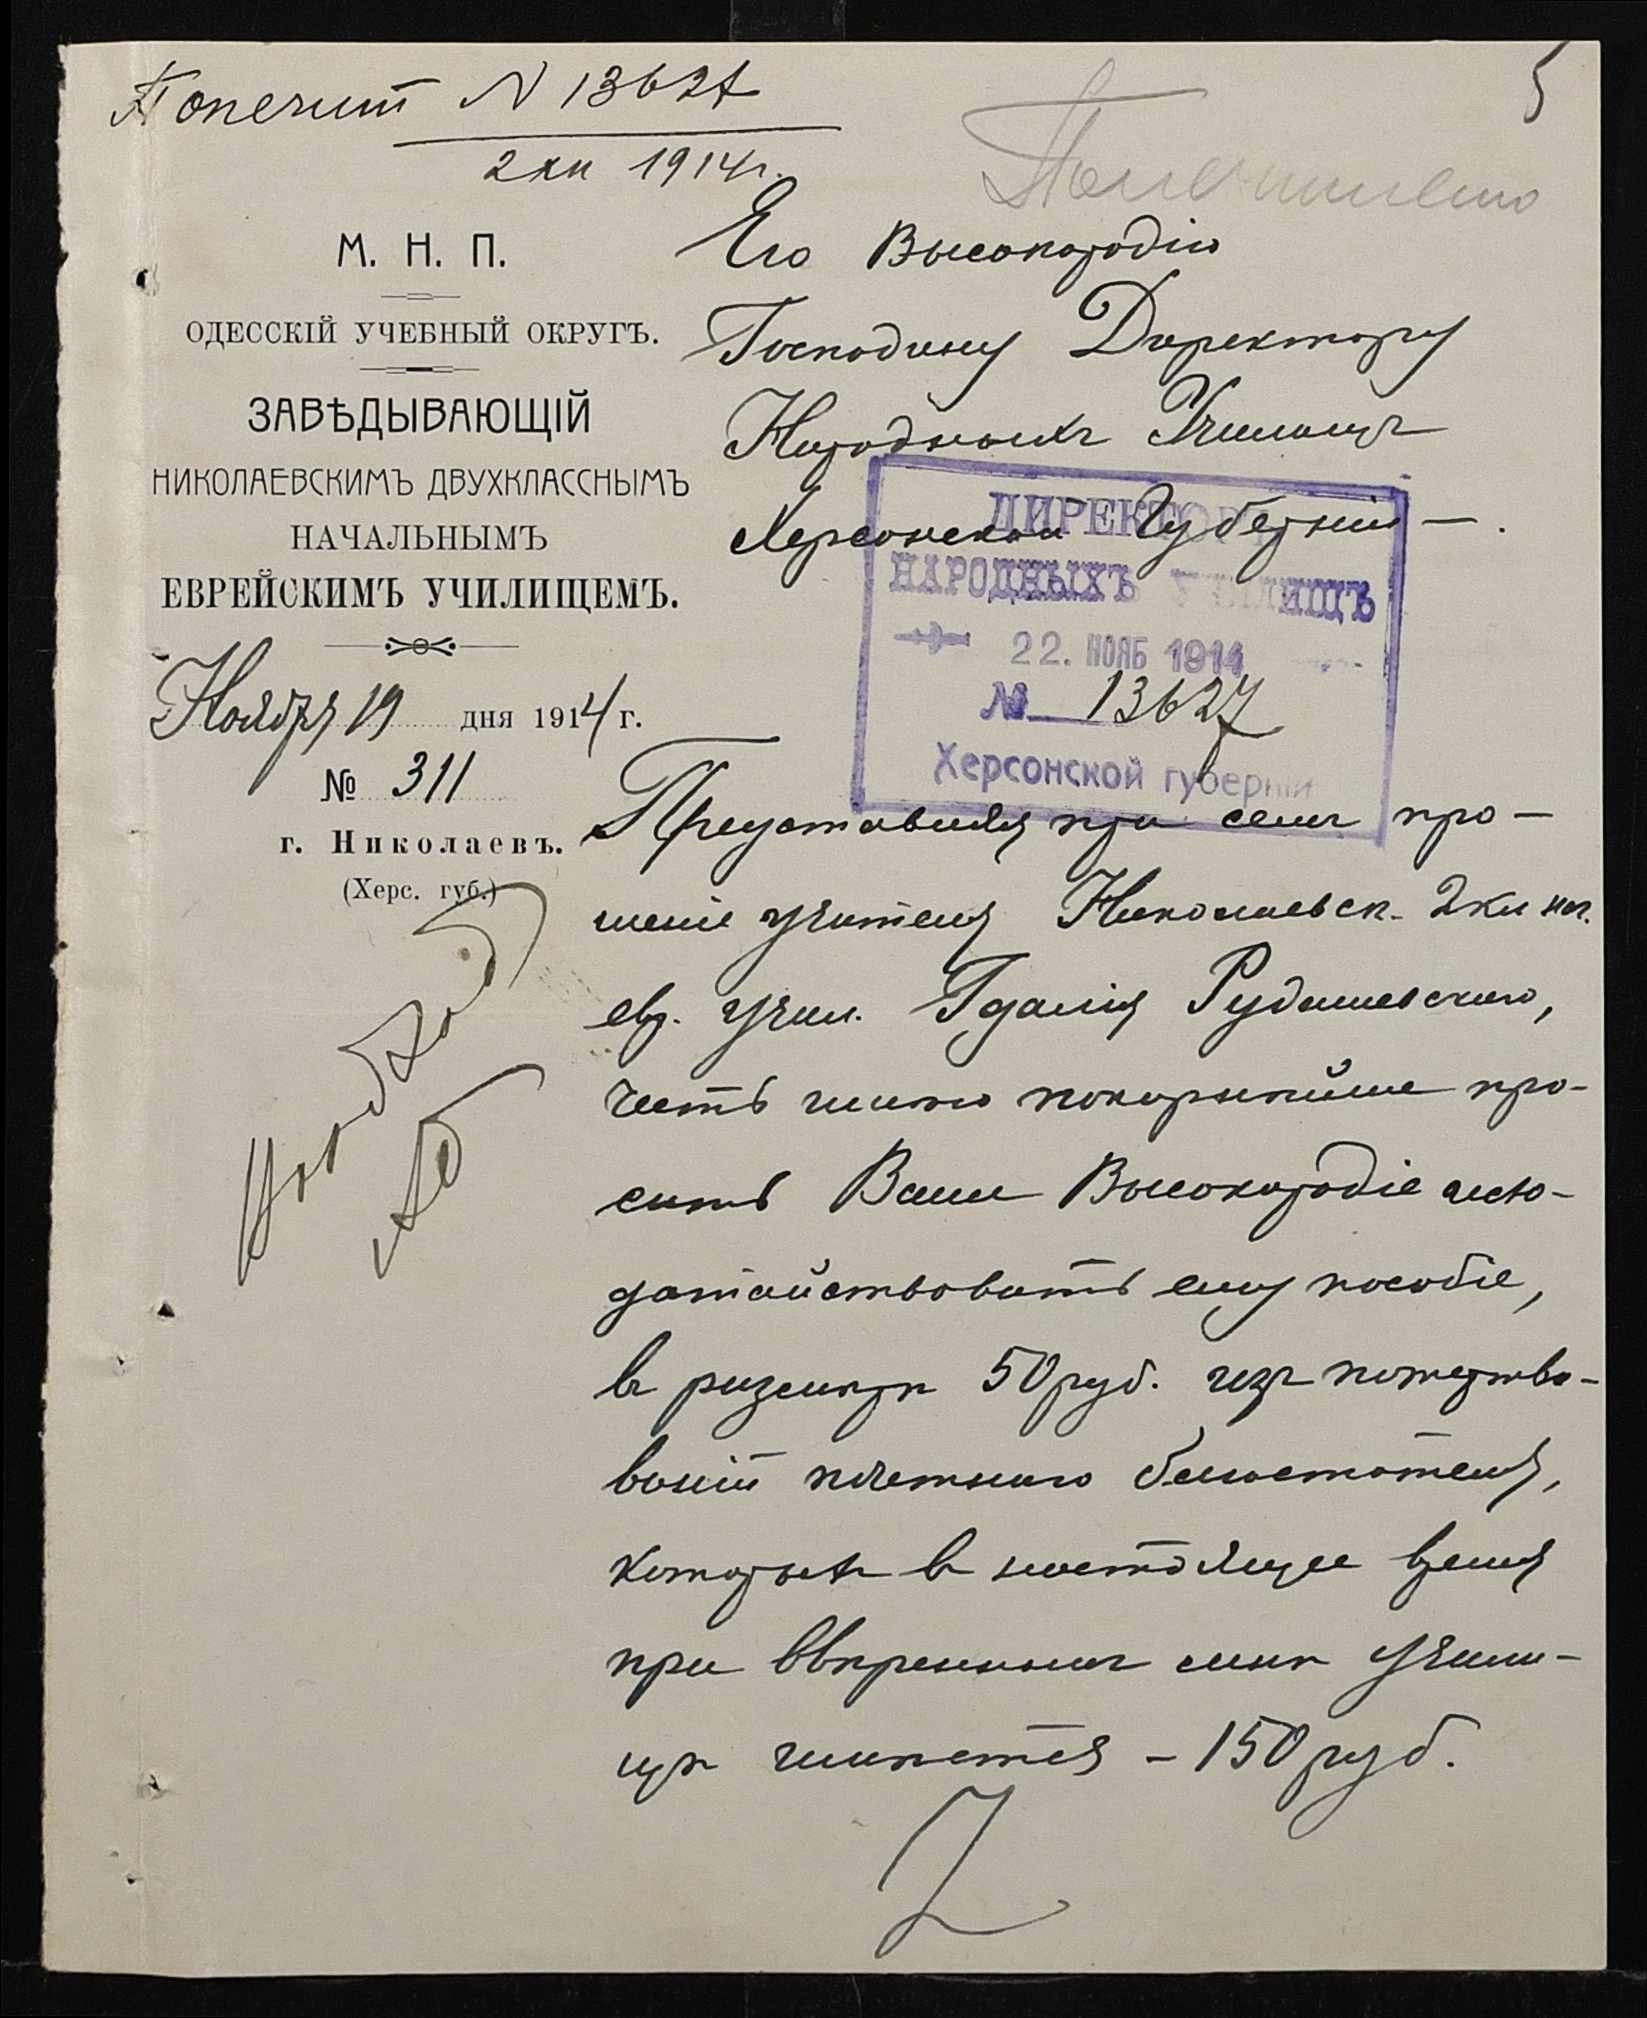 Попечит N 13627
2 XII 1914 г.
5
Попечителю
М. Н. П.
ОДЕССКІЙ УЧЕБНЫЙ ОКРУГЪ.
ЗАВѢДЫВАЮЩІЙ
НИКОЛАЕВСКИМЪ ДВУХКЛАССНЫМЪ
НАЧАЛЬНЫМЪ
ЕВРЕЙСКИМЪ УЧИЛИЩЕМЪ.
Ноября 19 дня 1914 г.
№ 311
г. Николаевъ.
(Херс. губ.)
Его Высокородію
Господину Директору
Народныхъ Училищъ
Херсонской Губерніи.
ДИРЕКТОРЪ
НАРОДНЫХЪ УЧИЛИЩЪ
22. НОЯБ 1914
№ 13627
Херсонской губерніи
Представляя при семъ про-
шеніе учителя Николаевск. 2 кл нач.
евр. учил. Гдалія Рудашевскаго,
честь имѣю покорнѣйше про-
сить Ваше Высокородіе исхо-
датайствовать ему пособіе,
въ размѣрѣ 50 руб. изъ пожертво-
ваній почетнаго блюстителя,
которыхъ въ настоящее время
при ввѣренномъ мнѣ учили-
щѣ имѣется - 150 руб.